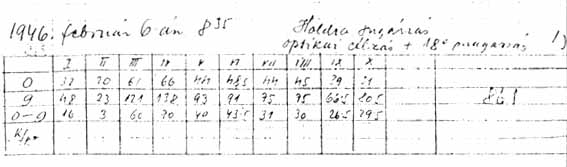 1946. február 6-án 8³⁵
Holdra sugárzás 1)
optikai célzás + 18°
I II III IV V VI VII VIII IX X
0 32 20 61 66 44 48.5 44 45 39 51
9 48 23 121 138 93 91 75 75 66.5 80.5 861
0-9 16 3 60 70 40 43.5 31 30 26.5 29.5